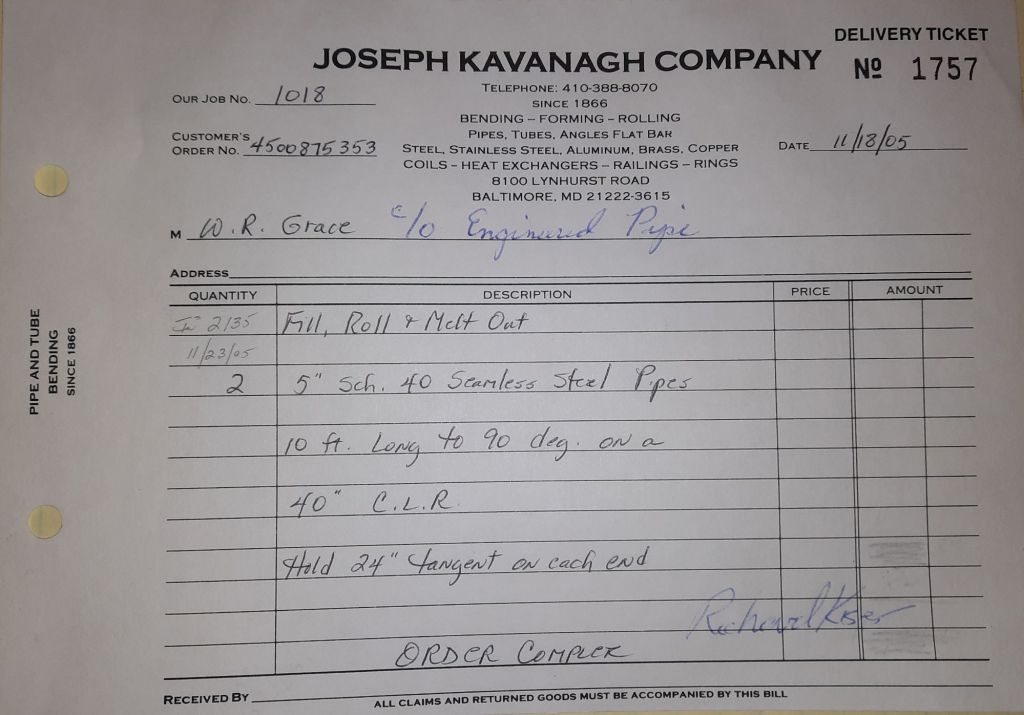 DELIVERY TICKET
JOSEPH KAVANAGH COMPANY
Nº 1757
TELEPHONE: 410-388-8070
OUR JOB NO. 1018
SINCE 1866
BENDING – FORMING – ROLLING
CUSTOMER'S
ORDER NO. 4500875353
PIPES, TUBES, ANGLES FLAT BAR
STEEL, STAINLESS STEEL, ALUMINUM, BRASS, COPPER
DATE 11/18/05
COILS – HEAT EXCHANGERS – RAILINGS – RINGS
8100 LYNHURST ROAD
BALTIMORE, MD 21222-3615
M W.R. Grace c/o Engineered Pipe
ADDRESS
QUANTITY DESCRIPTION PRICE AMOUNT
2135 Fill, Roll & Melt Out
11/23/05
2 5" Sch. 40 Seamless Steel Pipes
10 ft. Long to 90 deg. on a
40" C.L.R.
Hold 24" tangent on each end
Richard Kiser
ORDER
RECEIVED BY
ALL CLAIMS AND RETURNED GOODS MUST BE ACCOMPANIED BY THIS BILL
PIPE AND TUBE
BENDING
SINCE 1866